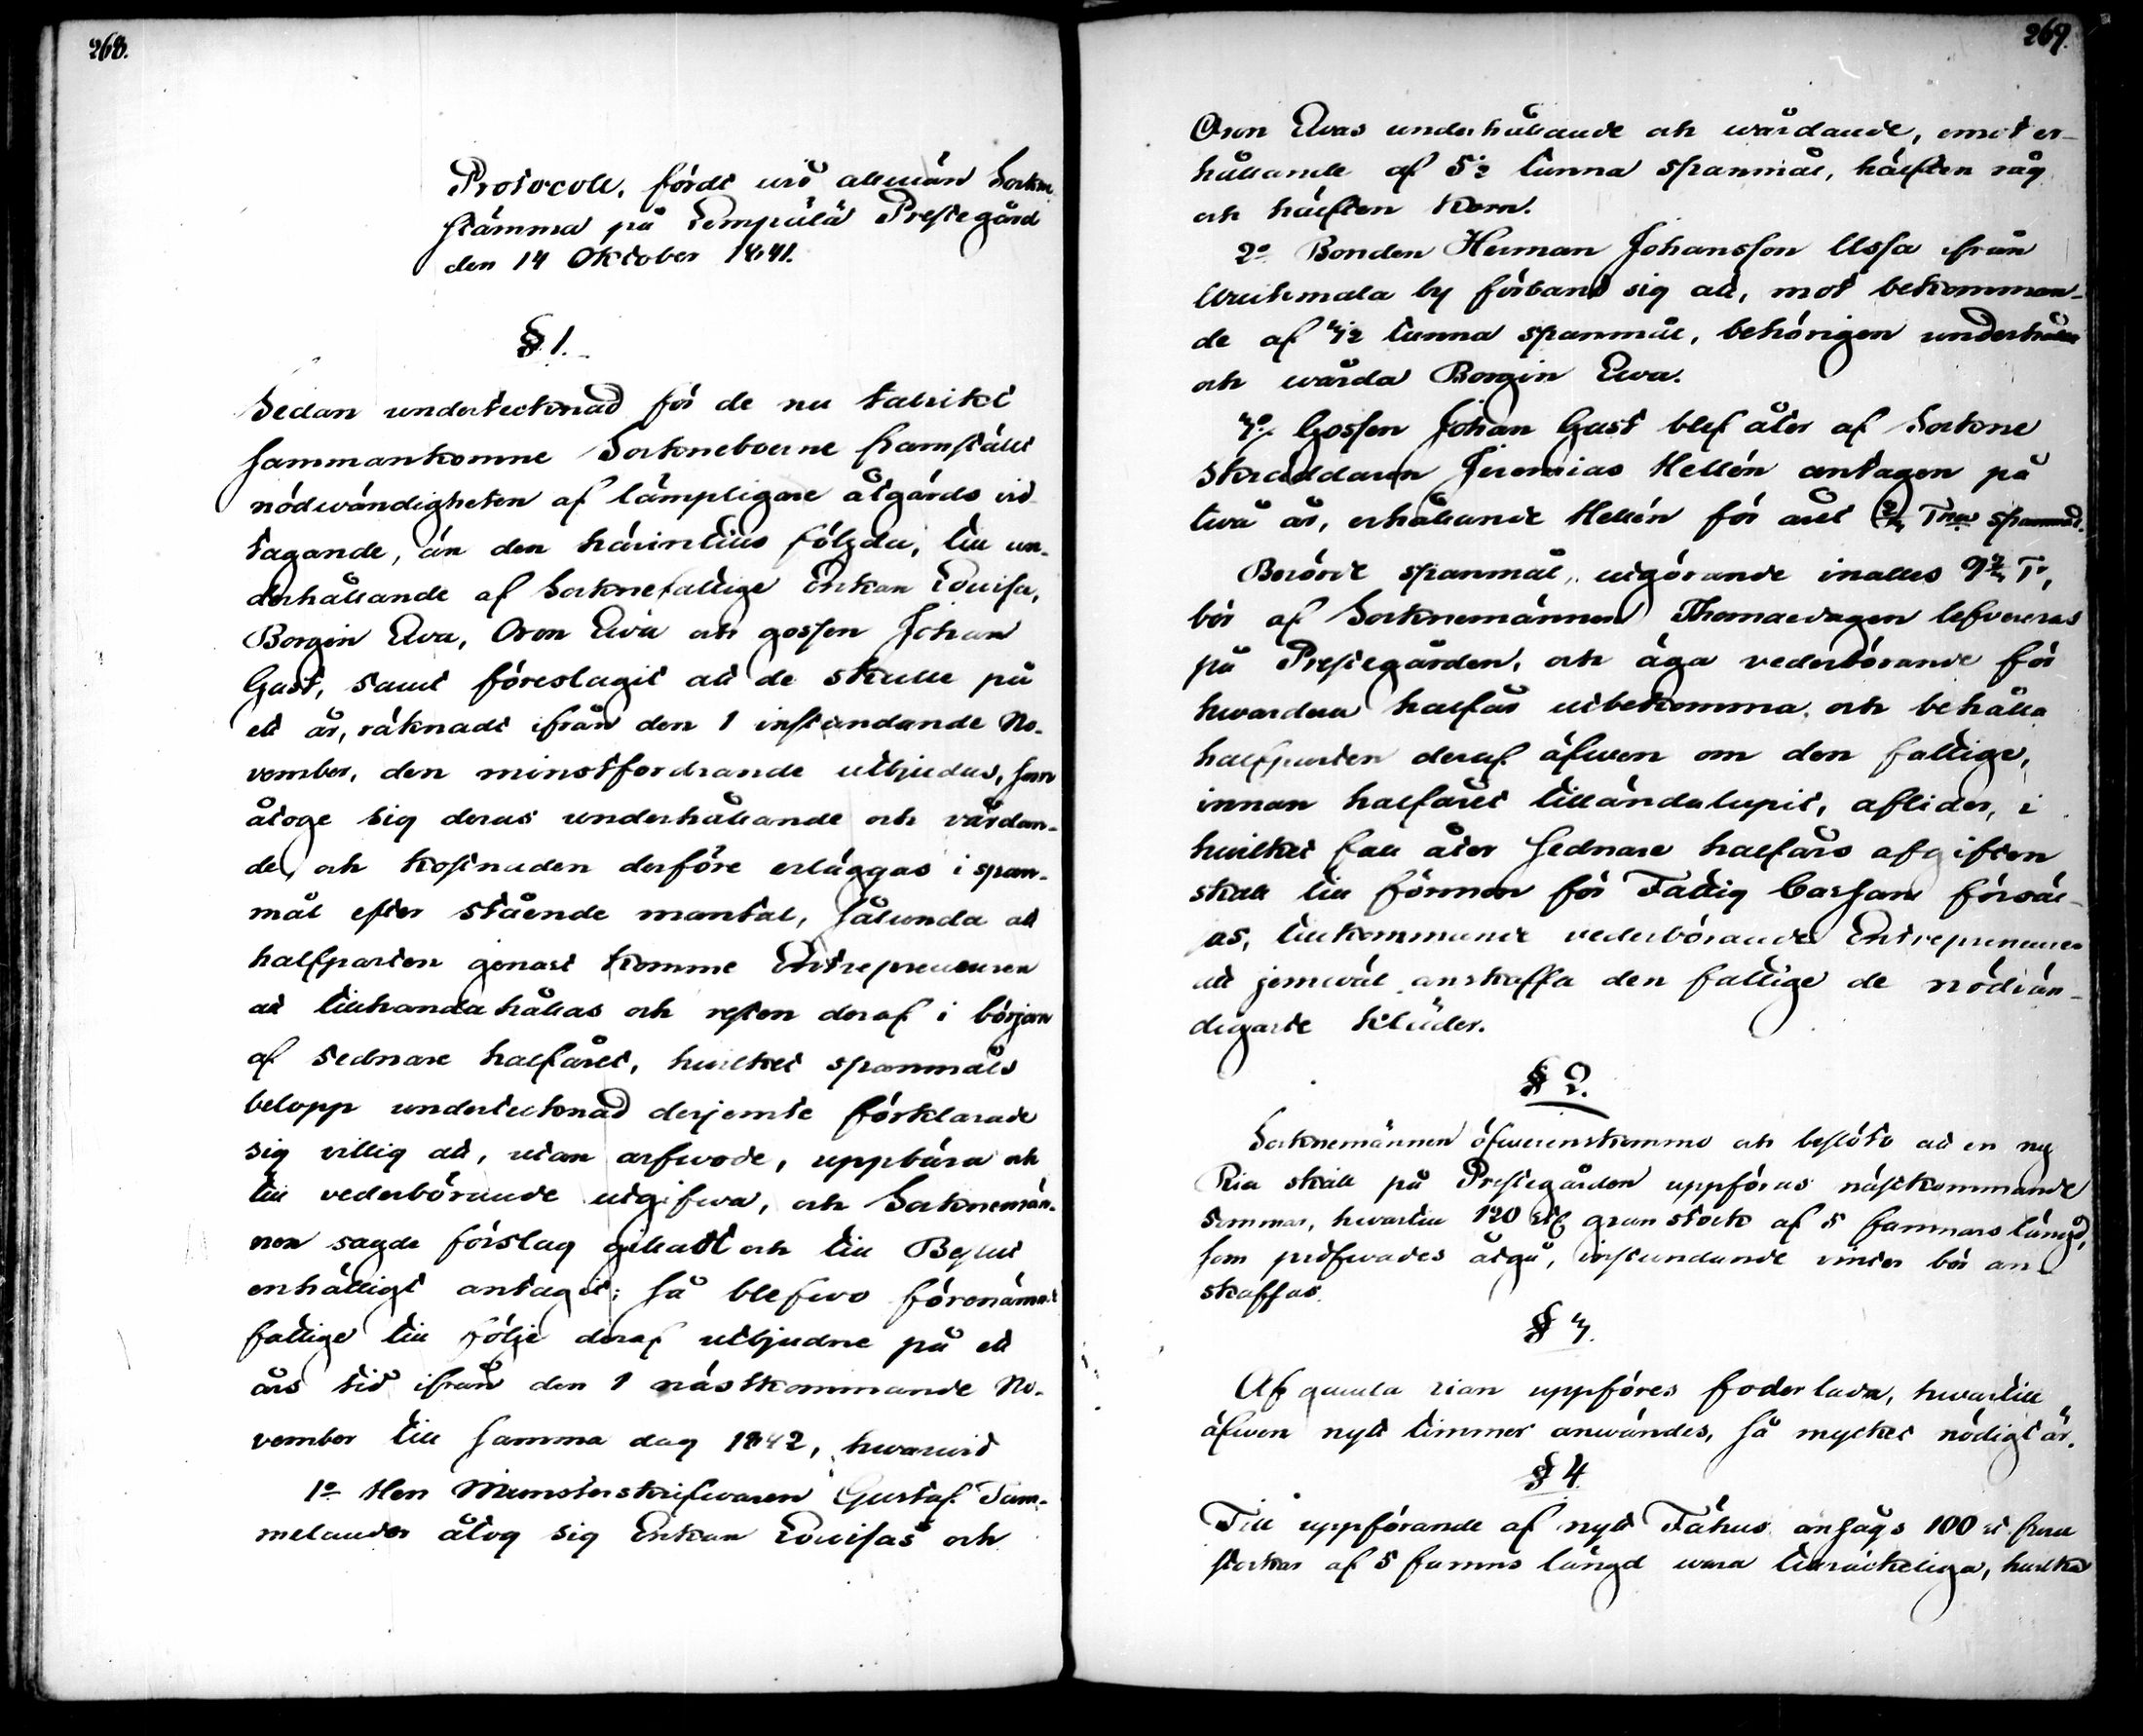 268.
Protocoll, fördt wid allmän Sockne
stämma på Lempälä Prestegård
den 14 Oktober 1841.
§ 1.
Sedan undertecknad för de nu talrikt
sammankomne Sockneboerne framställt
nödwändigheten af lämpligare åtgärds vid-
tagande, än den härintills följda, till un-
derhållande af Socknefattige Enkan Lovisa,
Borgin Ewa, Oron Ewa och gossen Johan
Gast, samt föreslagit att de skulle på
ett år, räknadt ifrån den 1 instundande No-
vember, den minstfordrande utbjudas, som
åtoge sig deras underhållande och vårdan-
de, och kostnaden derföre erläggas i span-
mål efter stående mantal, sålunda att
halfparten genast komme Entrepreneuren
att tillhanda hållas och resten deraf i början
af sednare halfåret, hvilket spanmåls
belopp undertecknad derjemte förklarade
sig villig att, utan arfwode, uppbära och
till vederbörande utgifwa, och Socknemän-
nen sagde förslag gillatt och till Beslut
enhälligt antagit; så blefwo förenämnde
fattige till följe deraf utbjudne på ett
års tid ifrån den 1 nästkommande No-
vember till samma dag 1842, hwarwid
1o Herr Mönsterskrifwaren Gustaf Tam-
melander åtog sig Enkan Lovisas och
269.
Oron Ewas underhållande och wårdande, emot er-
hållande af 5½ tunna spanmål, hälften råg
och hälften Korn.
2o Bonden Herman Johansson Ussa ifrån
by förband sig att, mot bekomman-
de af tunna spanmål, behörigen underhålla
och wårda Borgin Ewa.
3o Gossen Johan Gast blef åter af Sockne
skräddaren Jeremias Hellén antagen på
twå år, erhållande Hellén för året Tnna spanmål.
Berörde spanmål, utgörande inalles Tr,
bör af Socknemännen Thomaedagen lefvereras
på Prestegården, och äga vederbörande för
hwardera halfår utbekomma och behålla
halfparten deraf äfwen om den fattige,
innan halfåret tilländalupit, aflider, i
hvilket fall åter sednare halfårs afgiften
skall till förmon för Fattig Cassan försäl-
jas, tillkommande vederbörande Entrepreneuer
att jemwäl anskaffa den fattige de nödvän-
digaste kläder.
§ 2.
Socknemännen öfwerenskommo och beslöto att en ny
Ria skall på Prestegården uppföras nästkommande
sommar, hwartill 120 st gran stock af 5 famnars längd,
som pröfwades åtgå, instundande vinter bör an-
skaffas.
§ 3.
Af gamla rian uppföres foder lada, hwartill
äfwen nytt timmer anwändes, så mycket nödigt är.
§ 4.
Till uppförande af nytt Fähus ansågs 100 st furu
stockar af 5 famns längd wara tillräckeliga, hvilka